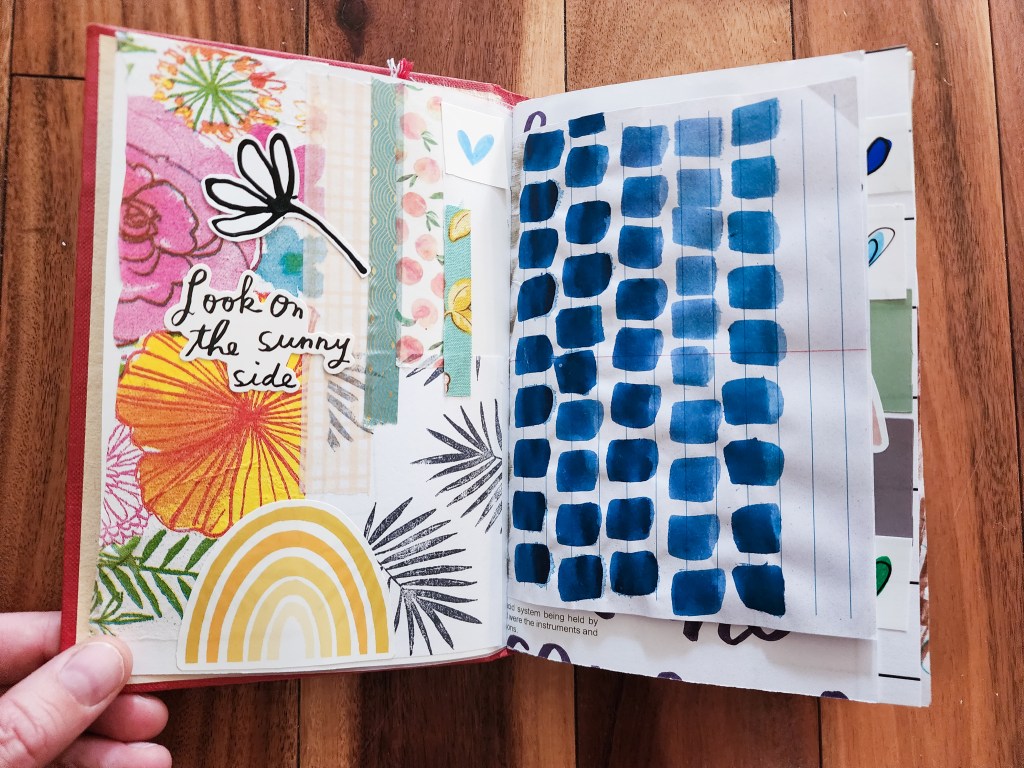 Look on
the sunny
side
ood system being held by
were the instruments and
ions